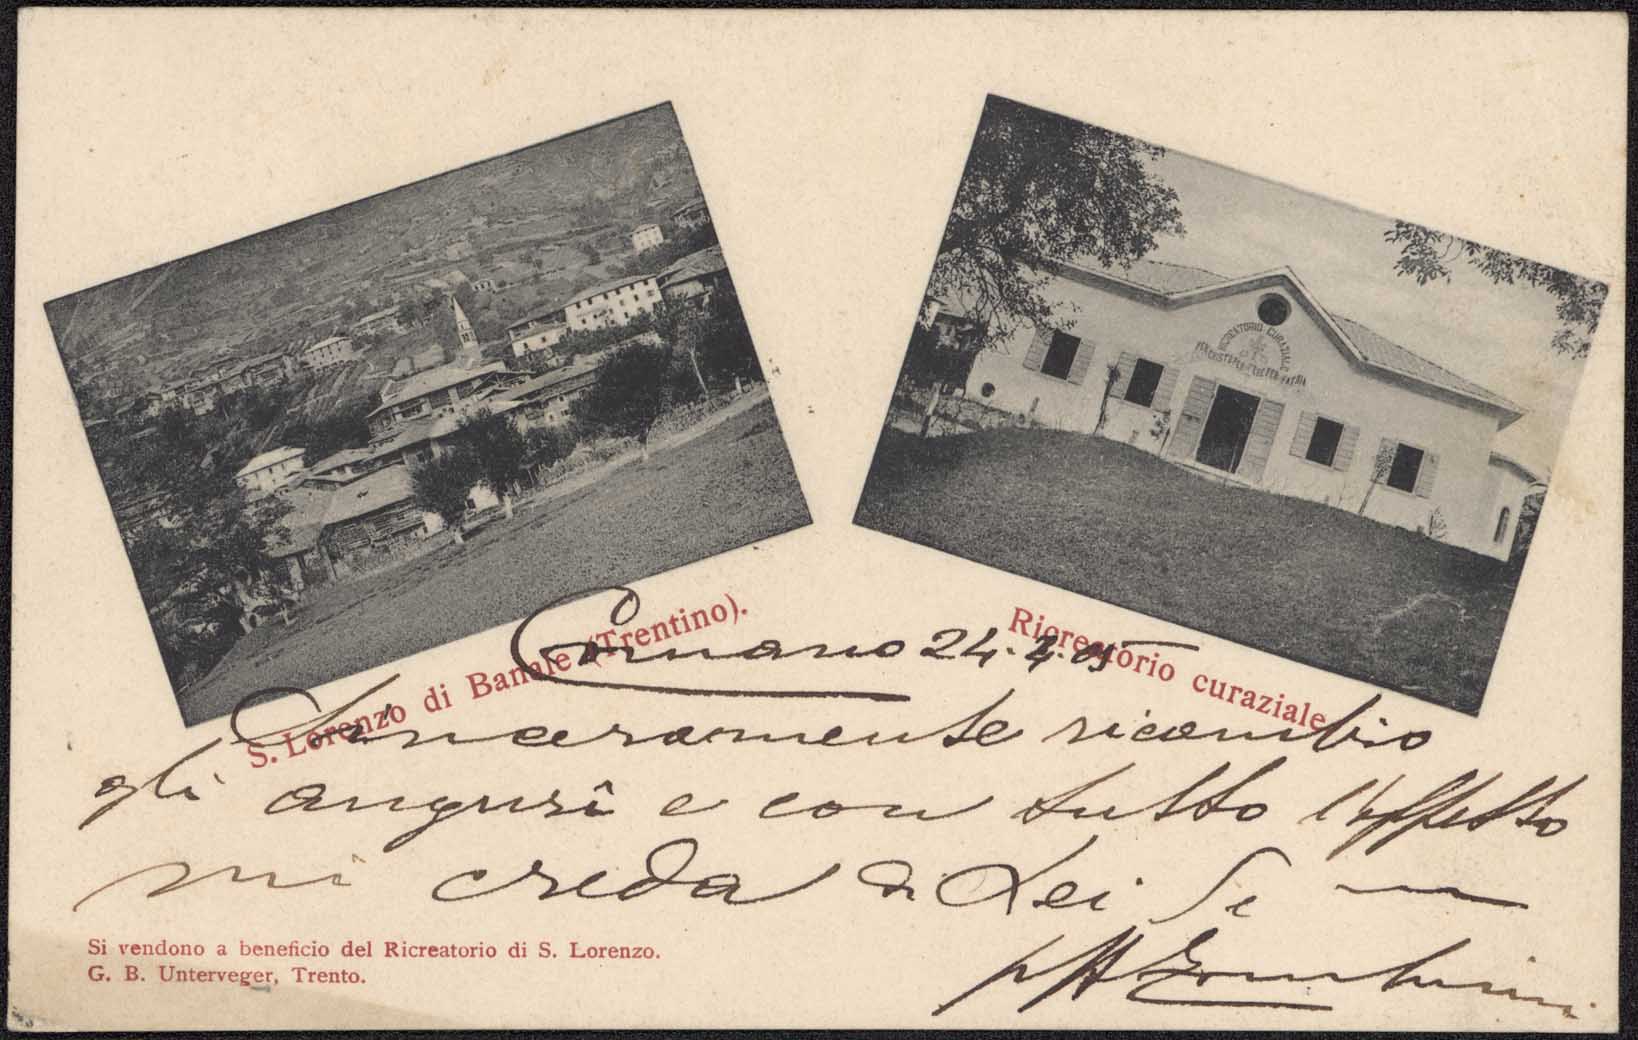 RICREATORIO CURAZIALE
S. Lorenzo di Banale (Trentino).
Ricreatorio curaziale
24.4.05
Sinceramente ricambio
gli auguri e con tutto l'affetto
mi creda di Lei
Si vendono a beneficio del Ricreatorio di S. Lorenzo.
G. B. Unterveger, Trento.